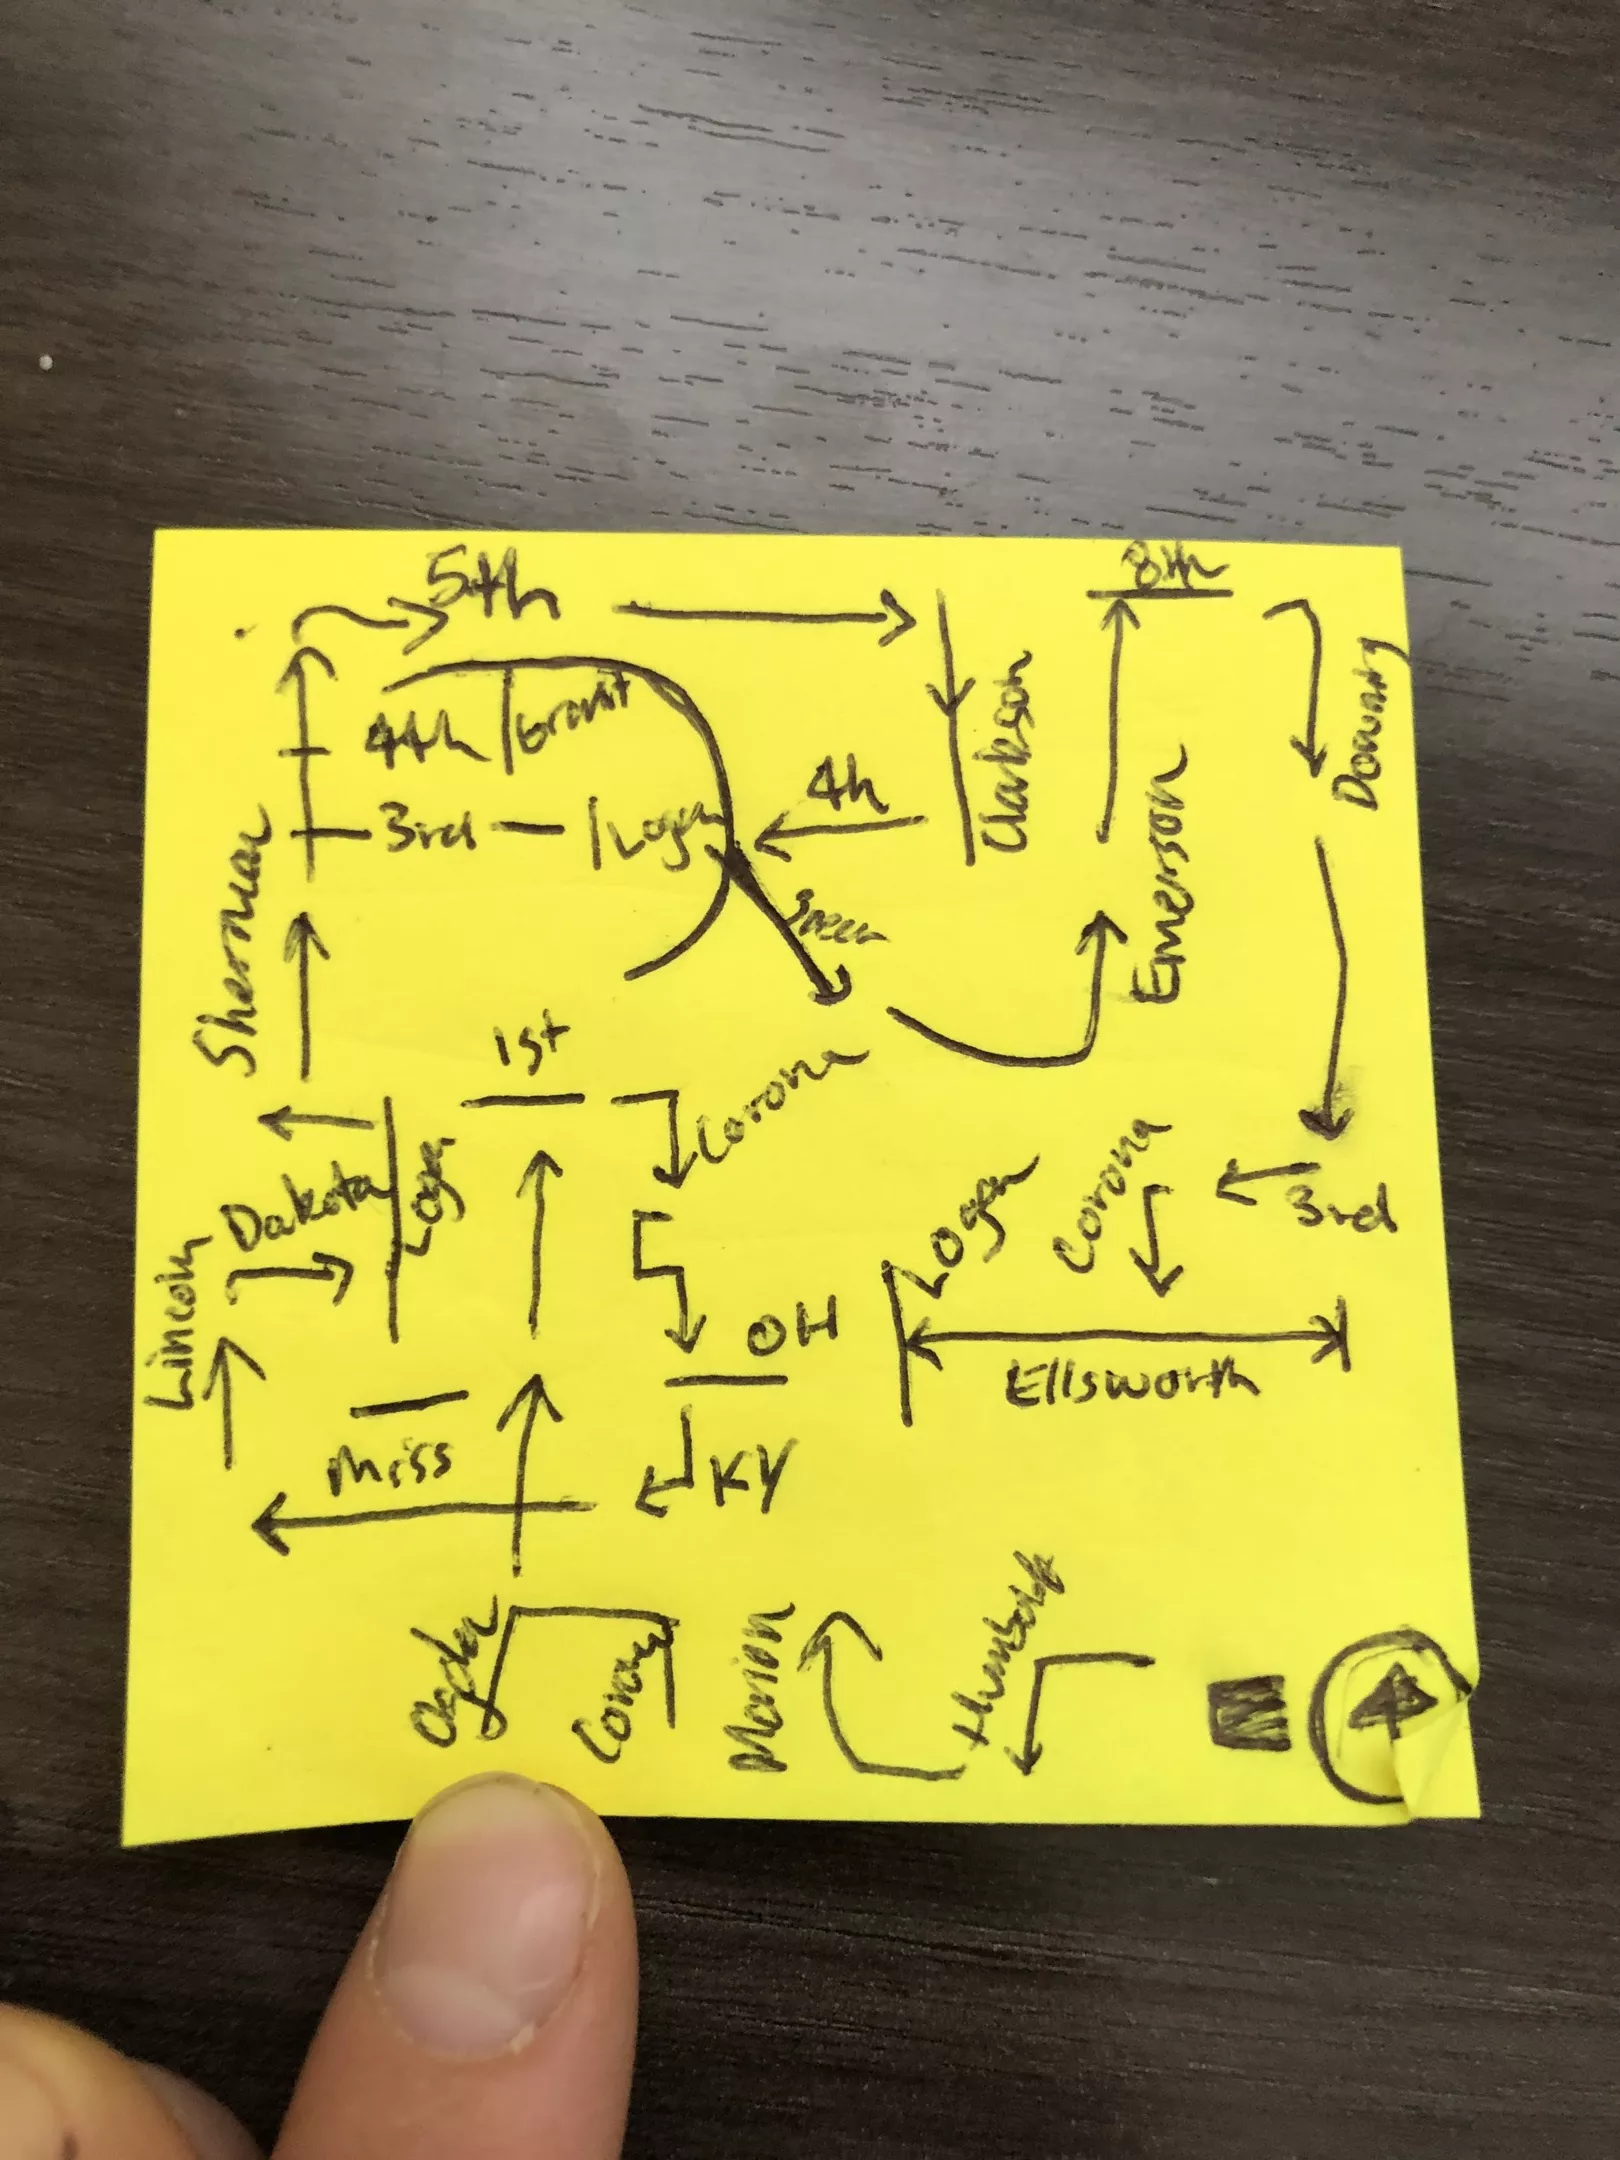 5th
8th
4th
Grant
3rd
Logan
4h
Clarkson
Downing
Sherman
Emerson
1st
Corona
Dakota
Logan
Lincoln
Logan
Corona
3rd
OH
Ellsworth
Miss
KY
Ogden
Corona
Marion
Humboldt